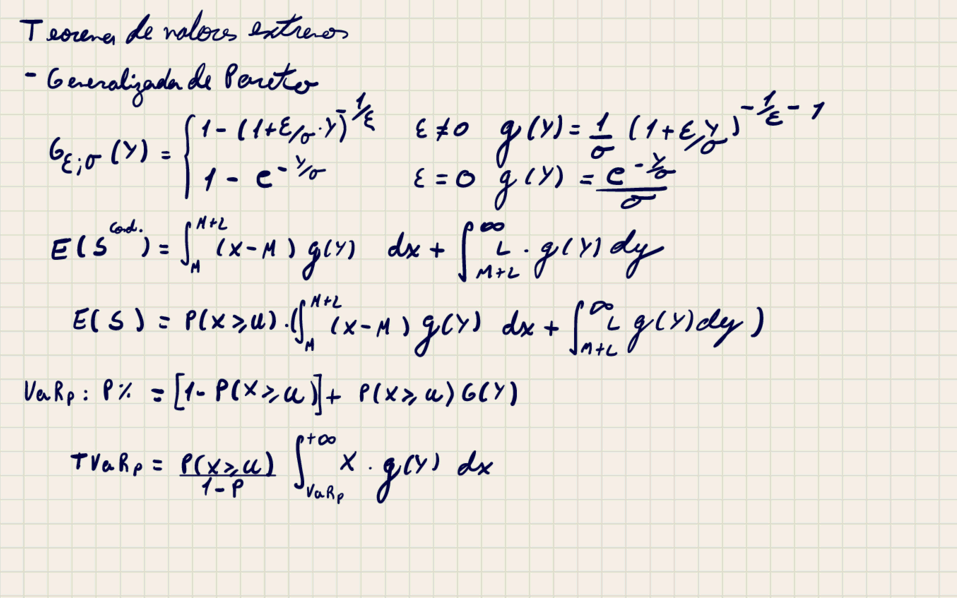 Teorema de valores extremos
- Generalizada de Pareto
G_{ε;σ}(Y) = { 1 - (1+ε/σ·Y)^{-1/ε}   ε≠0   g(Y) = 1/σ (1+ε Y/σ)^{-1/ε - 1}
1 - e^{-Y/σ}   ε=0   g(Y) = e^{-Y/σ}/σ
E(S^{Cond.}) = ∫_M^{M+L} (x-M) g(Y) dx + ∫_{M+L}^∞ L · g(Y) dy
E(S) = P(X≥u)·(∫_M^{M+L} (x-M) g(Y) dx + ∫_{M+L}^∞ L g(Y) dy)
VaRp: P% = [1-P(X≥u)] + P(X≥u) G(Y)
TVaRp = P(X≥u)/(1-P) ∫_{VaRp}^{+∞} X · g(Y) dx